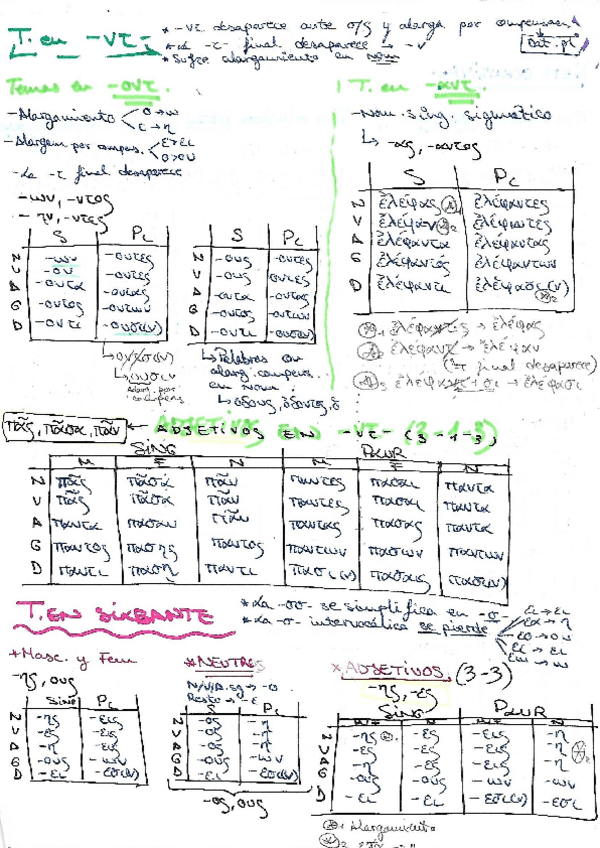 T. en -ντ-
* -ντ desaparece ante σ/ς y alarga por compensa.
* La -τ- final desaparece → -ν
* Sufre alargamiento en nom
Dat. pl
Temas en -οντ.
- Alargamiento ο→ω
ε→η
- Alargam por compens. ε>ει
ο>ου
- La -τ final desaparece
-ων, -ντος
-ην, -ντες
S PL
N -ων -οντες
V -ον -οντες
A -οντα -οντας
G -οντος -οντων
D -οντι -ουσι(ν)
↳ ουσιν
Alarg. por compens
S PL
N -ους -οντες
V -ους οντες
A -οντα -οντας
G -οντος -οντων
D -οντι -ουσι(ν)
↳ Palabras con
alarg. compens.
en nom.
↳ ὀδους, ὀδοντος, ὁ
T. en -αντ.
- Nom. sing. sigmático
↳ -ας, -αντος
S PL
N ἐλέφας 1 ἐλέφαντες
V ἐλέφαν 2 ἐλέφαντες
A ἐλέφαντα ἐλέφαντας
G ἐλέφαντός ἐλεφαντων
D ἐλέφαντι ἐλέφασι(ν)
1 ἐλέφαντ-ς → ἐλέφας
2 ἐλέφαντ → ἐλέφαν
(τ final desaparece)
3 ἐλέφαντ + σι → ἐλέφασι
πᾶς, πᾶσα, πᾶν ← ADJETIVOS EN -ντ- (3-1-3)
SING PLUR
M F N M F N
N πᾶς πᾶσα πᾶν παντες πασαι παντα
V πᾶς πᾶσα πᾶν παντες πασαι παντα
A παντα πασαν πᾶν παντας πασας παντα
G παντος πασης παντος παντων πασων παντων
D παντι πασῃ παντι πασι(ν) πασαις πασι(ν)
T. EN SILBANTE
* La -σσ- se simplifica en -σ-
* La -σ- intervocálica se pierde
* Masc. y Fem
-ης, ους
Sing PL
N -ης -εις
V -ες -εις
A -η -εις
G -ους -ων
D -ει -εσι(ν)
* NEUTROS
N/V/A. sg → -ο
Resto → -ε
S PL
N -ος -η
V -ος -η
A -ος -η
G -ους -ων
D -ει -εσι(ν)
-ος, ους
* ADJETIVOS (3-3)
-ης, -ες
SING PLUR
N -ης -ες -εις -η
V -ες -ες -εις -η
A -η -ες -εις -η
G -ους -ους -ων -ων
D -ει -ει -εσι(ν) -εσι
1 Alargamiento